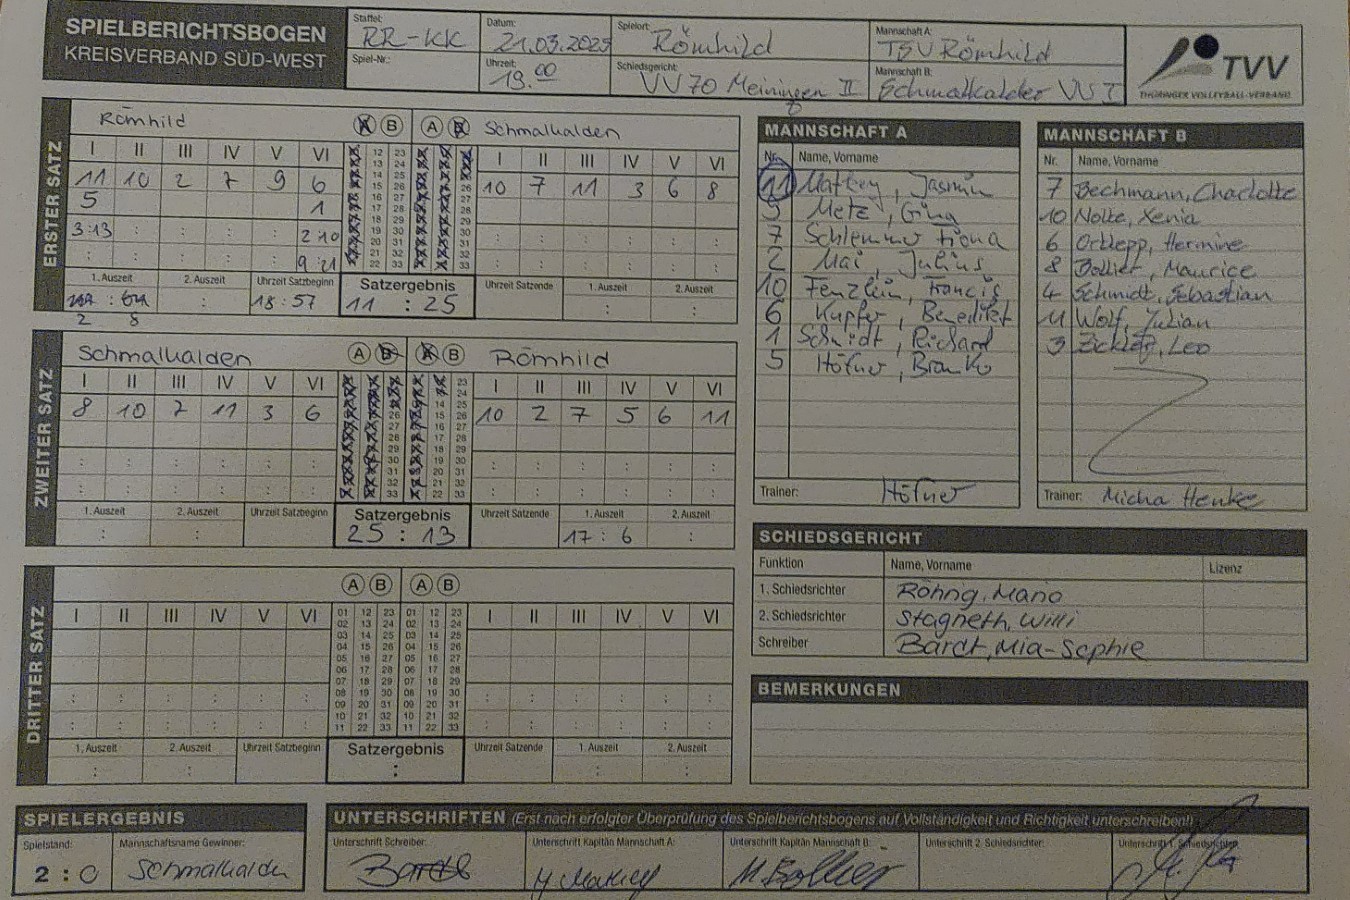 SPIELBERICHTSBOGEN
KREISVERBAND SÜD-WEST
Staffel: RR-KK
Spiel-Nr.:
Datum: 21.03.2025
Uhrzeit: 19.00
Spielort: Römhild
Schiedsgericht: VV 70 Meiningen II
Mannschaft A: TSV Römhild
Mannschaft B: Schmalkalder VV I
TVV
THÜRINGER VOLLEYBALL-VERBAND
ERSTER SATZ
Römhild A B A B Schmalkalden
I II III IV V VI I II III IV V VI
11 10 2 7 9 6 10 7 11 3 6 8
5 1
3:13 : : : : 2 10 : : : : : :
: : : : : 9 21 : : : : : :
1. Auszeit 2. Auszeit Uhrzeit Satzbeginn Satzergebnis Uhrzeit Satzende 1. Auszeit 2. Auszeit
: : 18:57 11 : 25 : :
2 8
ZWEITER SATZ
Schmalkalden A B A B Römhild
I II III IV V VI I II III IV V VI
8 10 7 11 3 6 10 2 7 5 6 11
: : : : : : : : : : : :
: : : : : : : : : : : :
1. Auszeit 2. Auszeit Uhrzeit Satzbeginn Satzergebnis Uhrzeit Satzende 1. Auszeit 2. Auszeit
: : 25 : 13 17 : 6 :
DRITTER SATZ
A B A B
I II III IV V VI I II III IV V VI
01 12 23 01 12 23
02 13 24 02 13 24
03 14 25 03 14 25
04 15 26 04 15 26
05 16 27 05 16 27
06 17 28 06 17 28
07 18 29 07 18 29
08 19 30 08 19 30
09 20 31 09 20 31
10 21 32 10 21 32
11 22 33 11 22 33
1. Auszeit 2. Auszeit Uhrzeit Satzbeginn Satzergebnis Uhrzeit Satzende 1. Auszeit 2. Auszeit
: : : : :
MANNSCHAFT A
Nr. Name, Vorname
11 Mattey, Jasmin
5 Metz, Gina
7 Schlemmer Fiona
2 Mai, Julius
10 Fenzlein, Francis
6 Kupfer, Benedikt
1 Schmidt, Richard
5 Höfner, Branko
Trainer: Höfner
MANNSCHAFT B
Nr. Name, Vorname
7 Bechmann, Charlotte
10 Nolte, Xenia
6 Ortlepp, Hermine
8 Bollier, Maurice
4 Schmidt, Sebastian
11 Wolf, Julian
3 Leo
Trainer: Micha Henke
SCHIEDSGERICHT
Funktion Name, Vorname Lizenz
1. Schiedsrichter Röhrig, Mario
2. Schiedsrichter Stagneth, Willi
Schreiber Bardt, Mia-Sophie
BEMERKUNGEN
SPIELERGEBNIS
Spielstand: Mannschaftsname Gewinner:
2 : 0 Schmalkalden
UNTERSCHRIFTEN (Erst nach erfolgter Überprüfung des Spielberichtsbogens auf Vollständigkeit und Richtigkeit unterschreiben!)
Unterschrift Schreiber: Unterschrift Kapitän Mannschaft A: Unterschrift Kapitän Mannschaft B: Unterschrift 2. Schiedsrichter: Unterschrift 1. Schiedsrichter:
Bardt M. Bollier